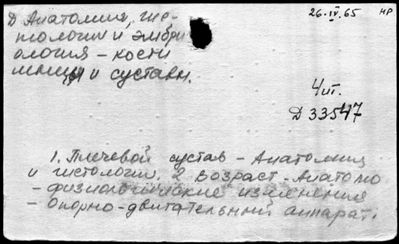 Д Анатомия, гис-
тологии и эмбри
ология - кости
мышцы и суставы.
26.IV.65 НР
4 чт.
Д 33547
1. Плечевой сустав - Анатомия
и гистологии. 2. Возраст - Анатомо
- физиологические изменения
- Опорно-двигательный аппарат.